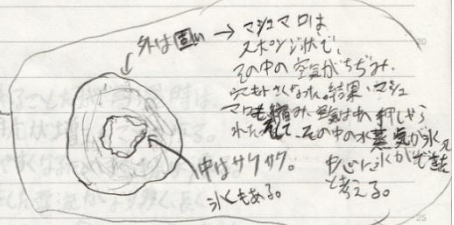 外は固い → マシュマロは
スポンジ状で、
その中の空気がちぢみ、
穴も小さくなった結果、マシュ
マロも縮み、空気は 押しやら
れた。そして、その中の水蒸気が氷え
中心に氷ができ
と考える。
中はサクサク。
氷もある。